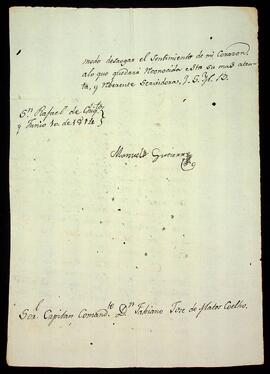 modo desaogar el Sentimiento de mi Corazon
alo que quedará Reconocida esta su mas aten-
ta, y Reberente Servidora, Q. S. M. B.
Sn Rafael de
y Junio 10. de 1814
Manuela Gutierrez
Sor. Capitan Comandte Dn Fabiano Jose de Matos Coelho.